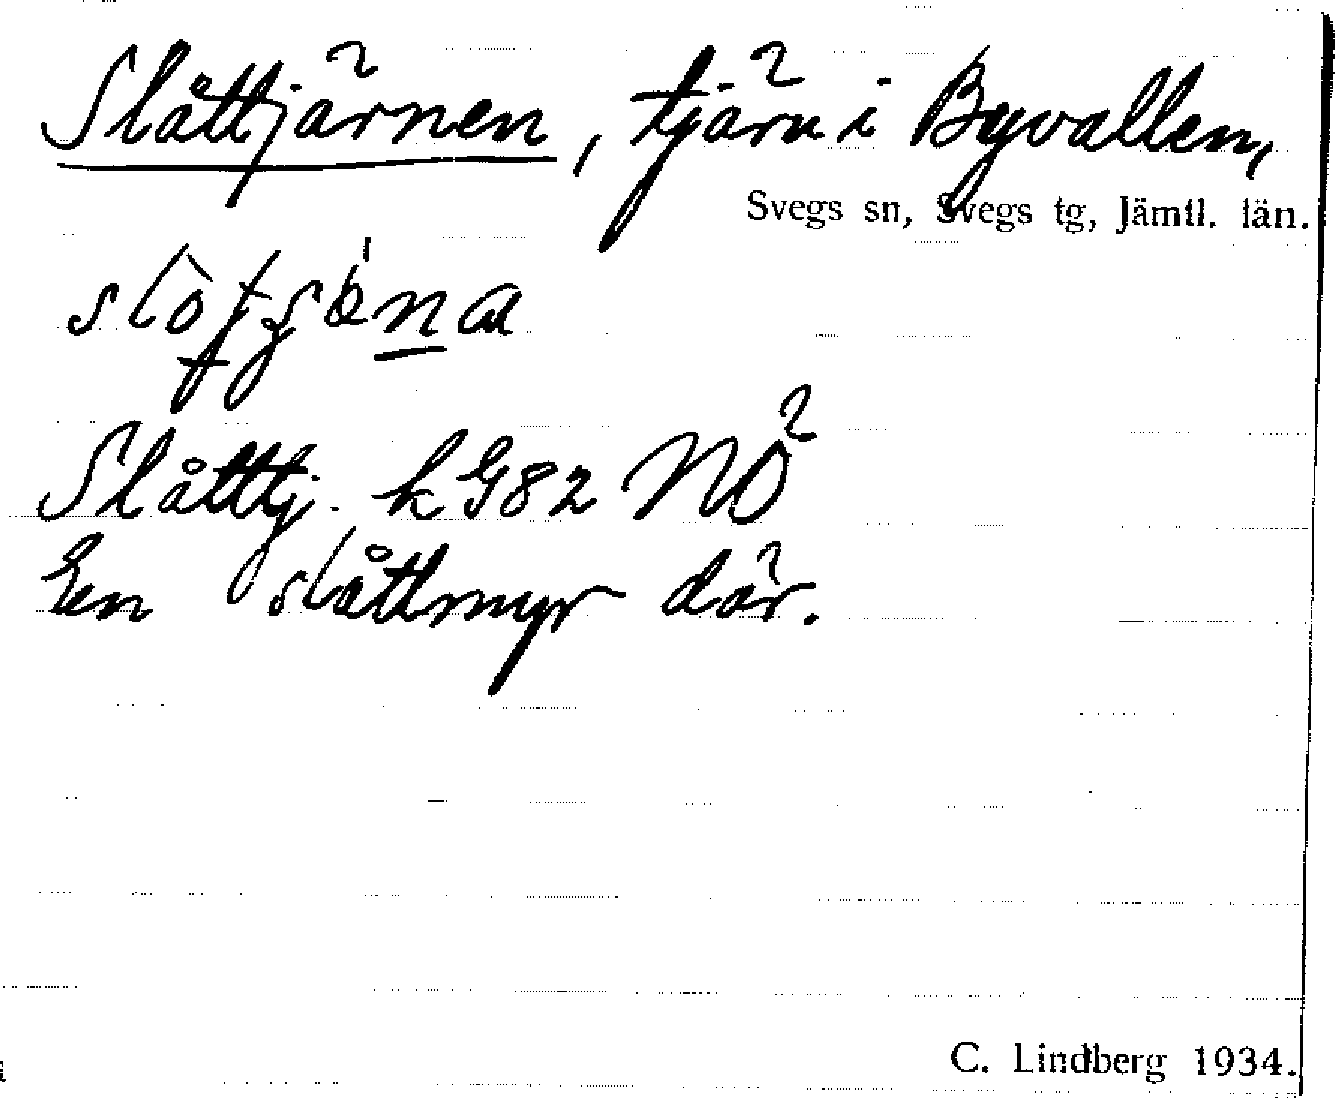 Slåttjärnen, tjärn i Byvallen,
Svegs sn, Svegs tg, Jämtl. län.
Slåttj. k G82 NÖ
En slåttmyr där.
C. Lindberg 1934.